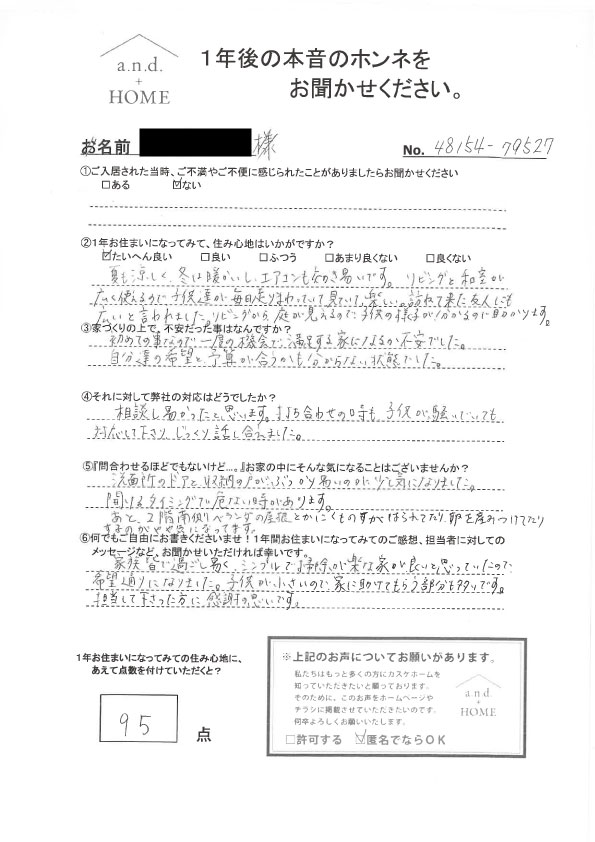 a.n.d.
+
HOME
1年後の本音のホンネを
お聞かせください。
お名前 様
No. 48154-79527
①ご入居された当時、ご不満やご不便に感じられたことがありましたらお聞かせください
□ある ☑ない
②1年お住まいになってみて、住み心地はいかがですか?
☑たいへん良い □良い □ふつう □あまり良くない □良くない
夏も涼しく、冬は暖かいし、エアコンも効き易いです。リビングと和室が
広く使えるので子供達が毎日走りまわっていて見ていて楽しい。訪れて来た友人にも
広いと言われました。リビングから庭が見えるので子供の様子が分かるのに助かります。
③家づくりの上で、不安だった事はなんですか?
初めての事なので一度の機会で満足する家になるか不安でした。
自分達の希望と予算が合うかも分からない状態でした。
④それに対して弊社の対応はどうでしたか?
相談し易かったと思います。打ち合わせの時も子供が騒いでいても
対応して下さり、じっくり話し合えました。
⑤『問合わせるほどでもないけど…。』お家の中にそんな気になることはございませんか?
洗面所のドアと収納の戸がぶつかり易いのが少し気になりました。
開けるタイミングで危ない時があります。
あと、2階南側ベランダの屋根とかにくものすがはられてたり、卵を産みつけてたり
するのがやや気になってます。
⑥何でもご自由にお書きくださいませ!1年間お住まいになってみてのご感想、担当者に対しての
メッセージなど、お聞かせいただければ幸いです。
家族皆で過ごし易く、シンプルで掃除が楽な家が良いと思っていたので
希望通りになりました。子供が小さいので家に助けてもらう部分も多いです。
担当して下さった方に感謝の思いです。
1年お住まいになってみての住み心地に、
あえて点数を付けていただくと?
95 点
※上記のお声についてお願いがあります。
私たちはもっと多くの方にカスケホームを
知っていただきたいと願っております。
そのために、このお声をホームページや
チラシに掲載させていただきたいのです。
何卒よろしくお願いいたします。
a.n.d.
+
HOME
□許可する ☑匿名でならOK